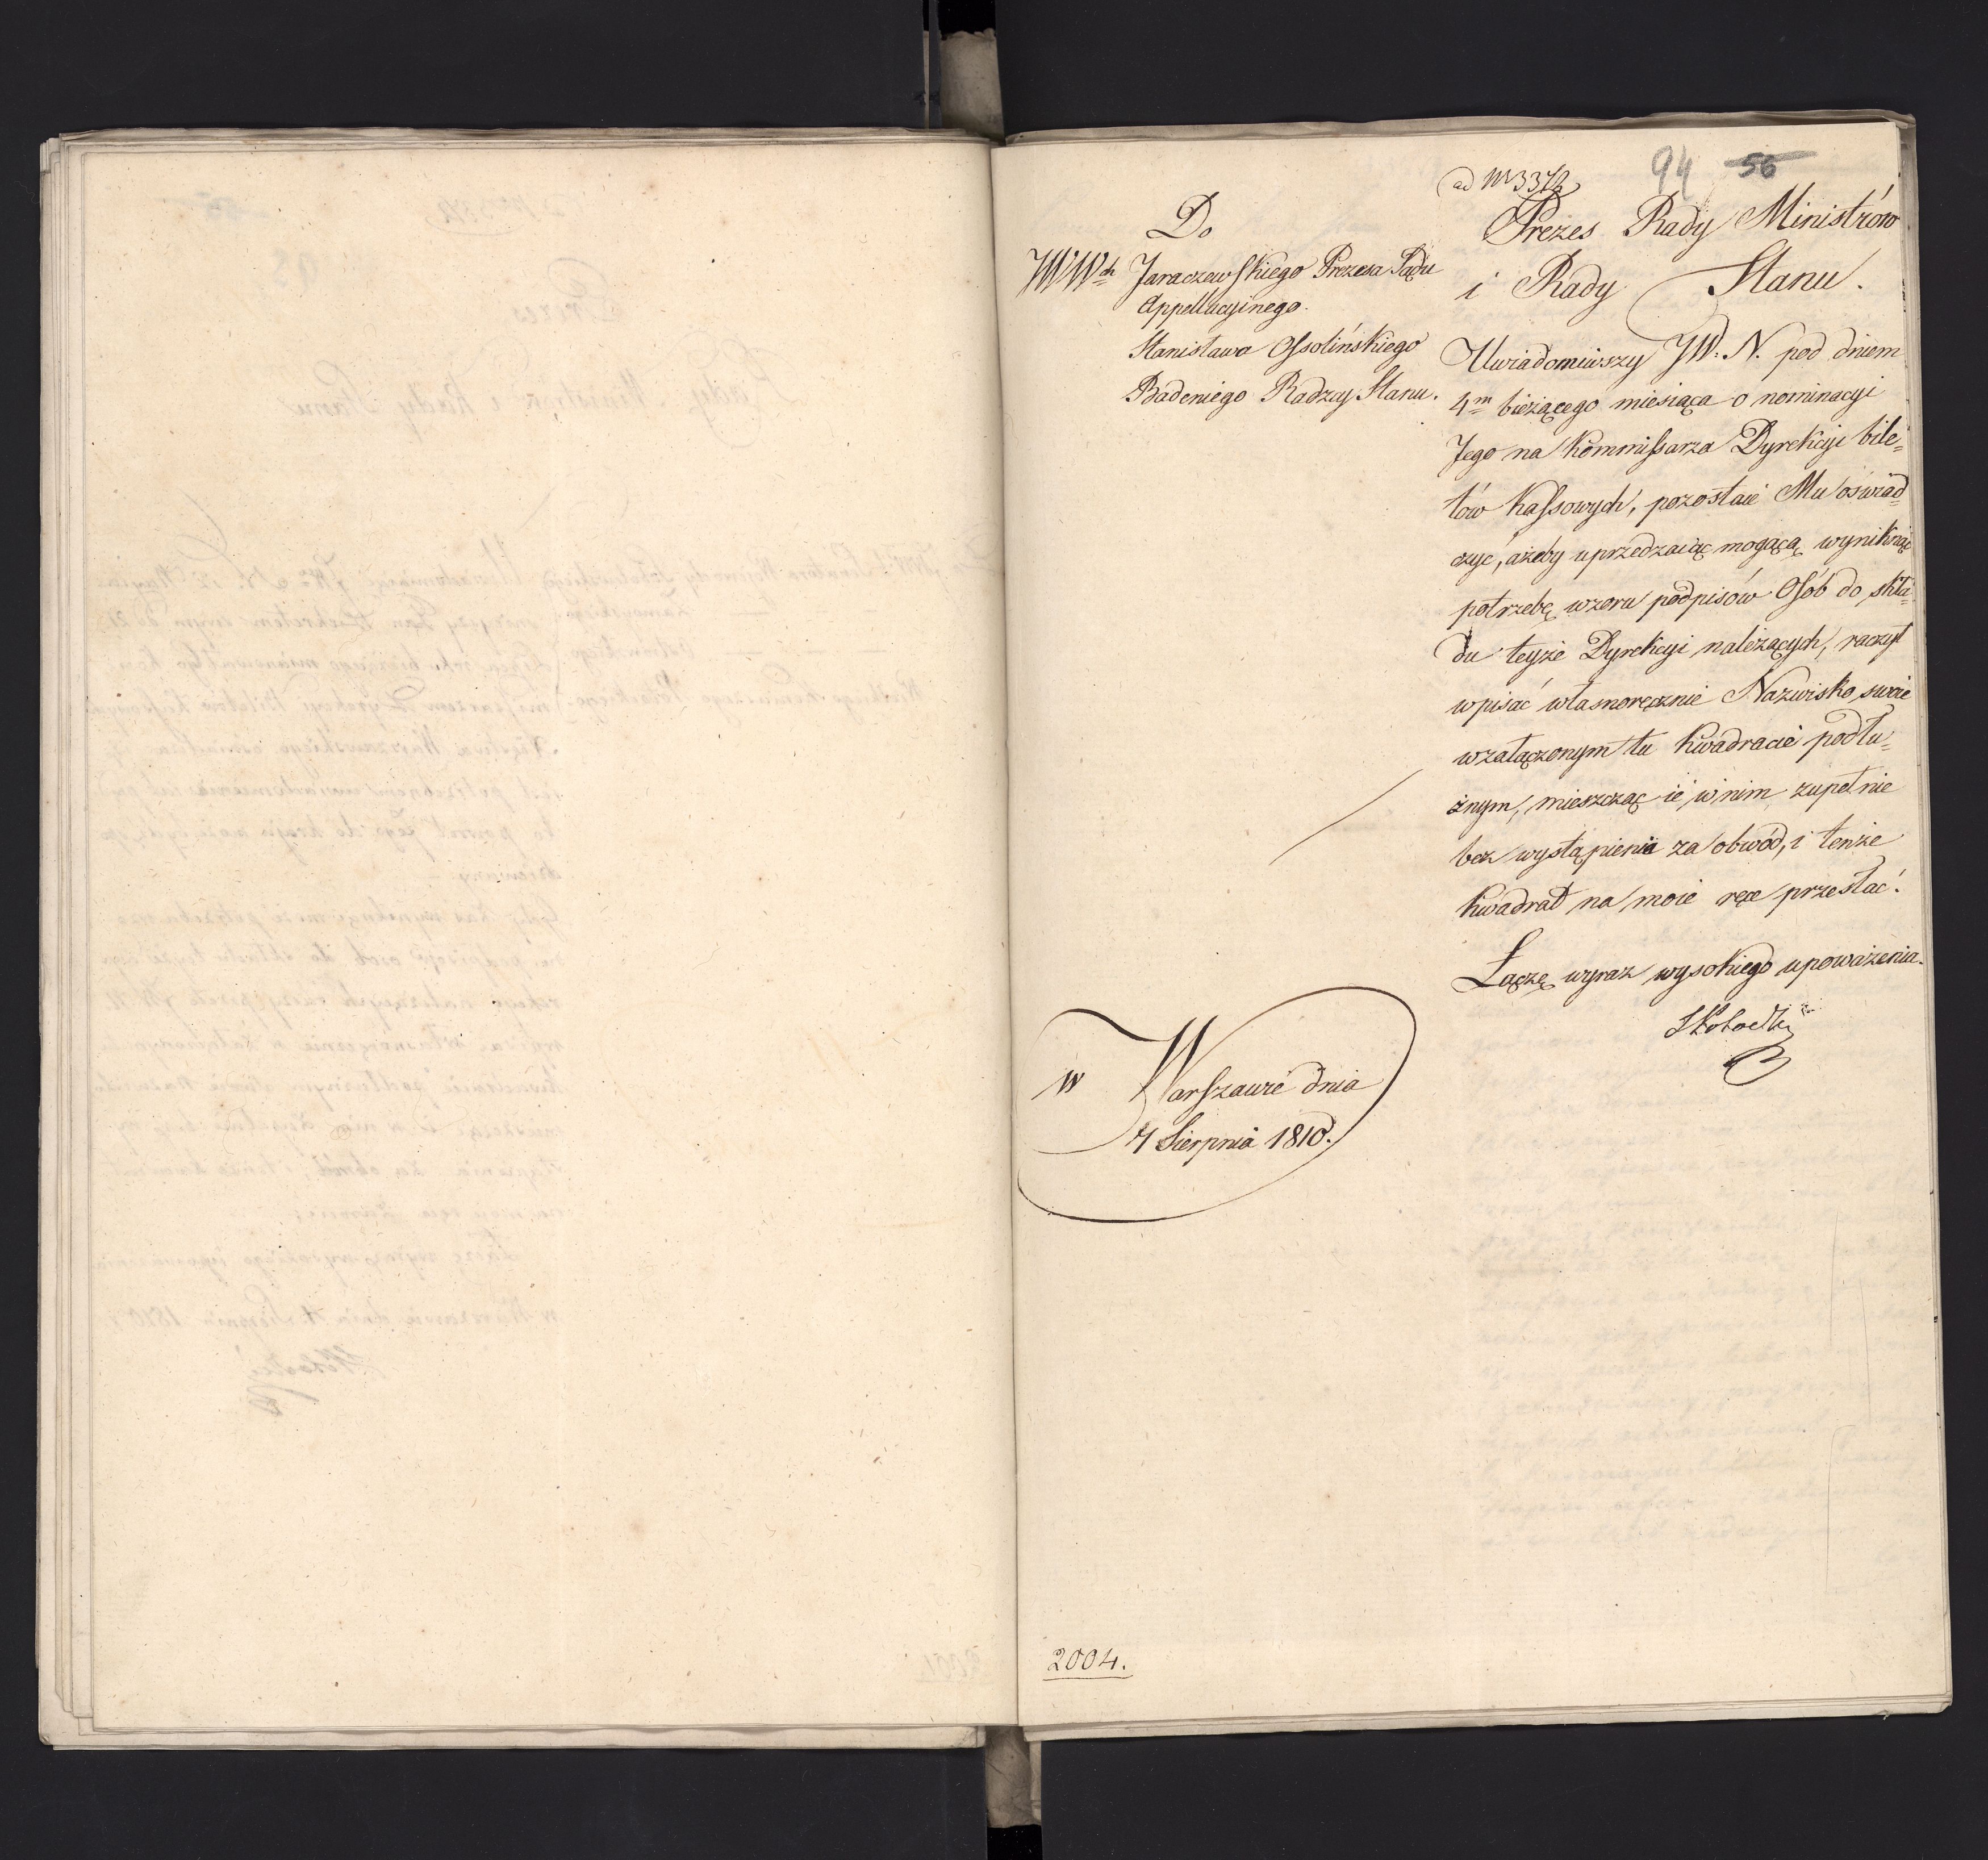 94 56
ad Nr 3372
Do
JWWch Jaraczewskiego Prezesa Sądu
Appellacyinego.
Stanisława Ossolińskiego
Badeniego Radzcy Stanu.
Prezes Rady Ministrów
i Rady Stanu.
Uwiadomiwszy JW. N. pod dniem
4m bieżącego miesiąca o nominacyi
Jego na Kommissarza Dyrekcyi bile=
tów Kassowych, pozostaie Mu oświad=
czyć, ażeby uprzedzaiąc mogącą wyniknąć
potrzebę wzoru podpisów Osób do skła=
du teyże Dyrekcyi należących, raczył
wpisać własnoręcznie Nazwisko swoie
w załączonym tu kwadracie podłu=
żnym, mieszcząc ie w nim zupełnie
bez wystąpienia za obwód, i tenże
kwadrat na moie ręce przesłać.
Łączę wyraz wysokiego upoważenia.
W Warszawie dnia
4 Sierpnia 1810.
2004.